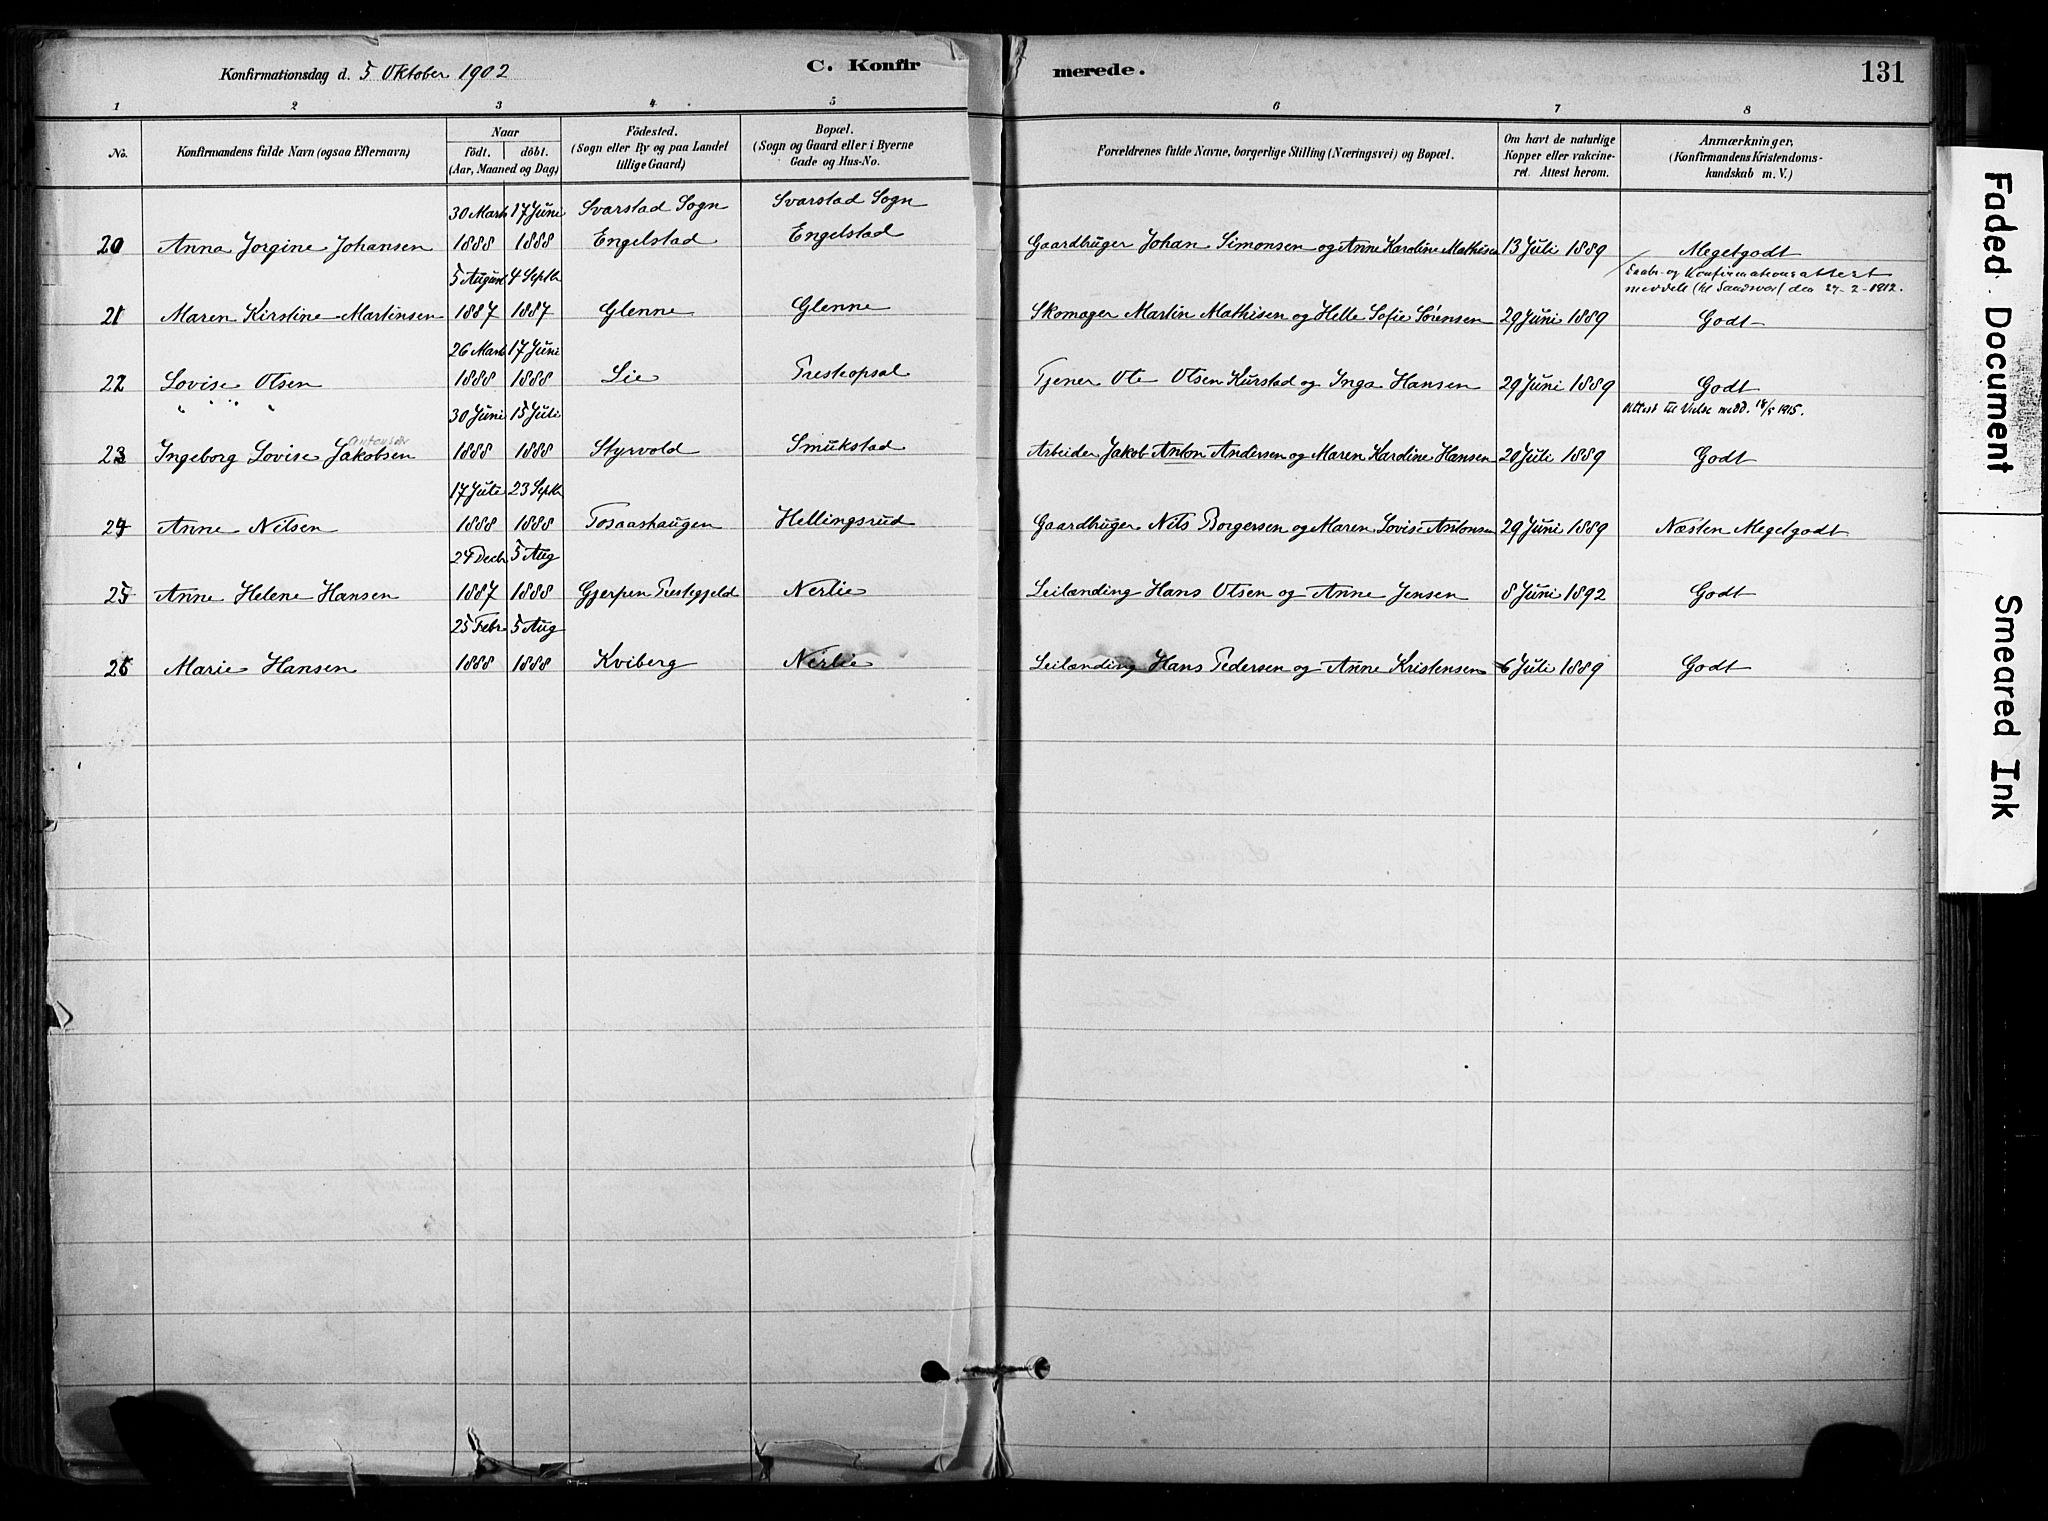 Konfirmationsdag d. 5 Oktober 1902
C. Konfir
merede.
131
1 2 3 4 5 6 7 8
No.
Konfirmandens fulde Navn (ogsaa Efternavn)
Naar
födt. döbt.
(Aar, Maaned og Dag)
Födested.
(Sogn eller By og paa Landet
tillige Gaard)
Bopæl.
(Sogn og Gaard eller i Byerne
Gade og Hus-No.
Forældrenes fulde Navne, borgerlige Stilling (Næringsvei) og Bopæl.
Om havt de naturlige
Kopper eller vakcine-
ret. Attest herom.
Anmærkninger,
(Konfirmandens Kristendoms-
kundskab m. V.)
30 Marts 17 Juni Svarstad Sogn Svarstad Sogn
20 Anna Jorgine Johansen 1888 1888 Engelstad Engelstad Gaardbruger Johan Simonsen og Anne Karoline Mathisen 13 Juli 1889 Megetgodt
5 August 4 Septbr Daabs- og Konfirmationsattest
meddelt (til Sandsvær) den 27-2-1912.
21 Maren Kirstine Martinsen 1887 1887 Glenne Glenne Skomager Martin Mathisen og Helle Sofie Sørensen 29 Juni 1889 Godt
26 Marts 17 Juni
22 Lovise Olsen 1888 1888 Lie Presteopsal Tjener Ole Olsen Kurstad og Inga Hansen 29 Juni 1889 Godt
30 Juni 15 Juli Attest til Vielse medd. 18/5 1915.
Antonsen
23 Ingeborg Lovise Jakobsen 1888 1888 Styrvold Smukstad Arbeider Jakob Anton Andersen og Maren Karoline Hansen 20 Juli 1889 Godt
17 Juli 23 Septbr
24 Anne Nilsen 1888 1888 Tosaashaugen Hellingsrud Gaardbruger Nils Borgersen og Maren Lovise Antonsen 29 Juni 1889 Næsten Megetgodt
24 Decbr 5 Aug
25 Anne Helene Hansen 1887 1888 Gjerpen Prestegjeld Nerlie Leilænding Hans Olsen og Anne Jensen 8 Juni 1892 Godt
25 Febr 5 Aug
26 Marie Hansen 1888 1888 Kviberg Nerlie Leilænding Hans Pedersen og Anne Kristensen 6 Juli 1889 Godt
Faded Document
Smeared Ink